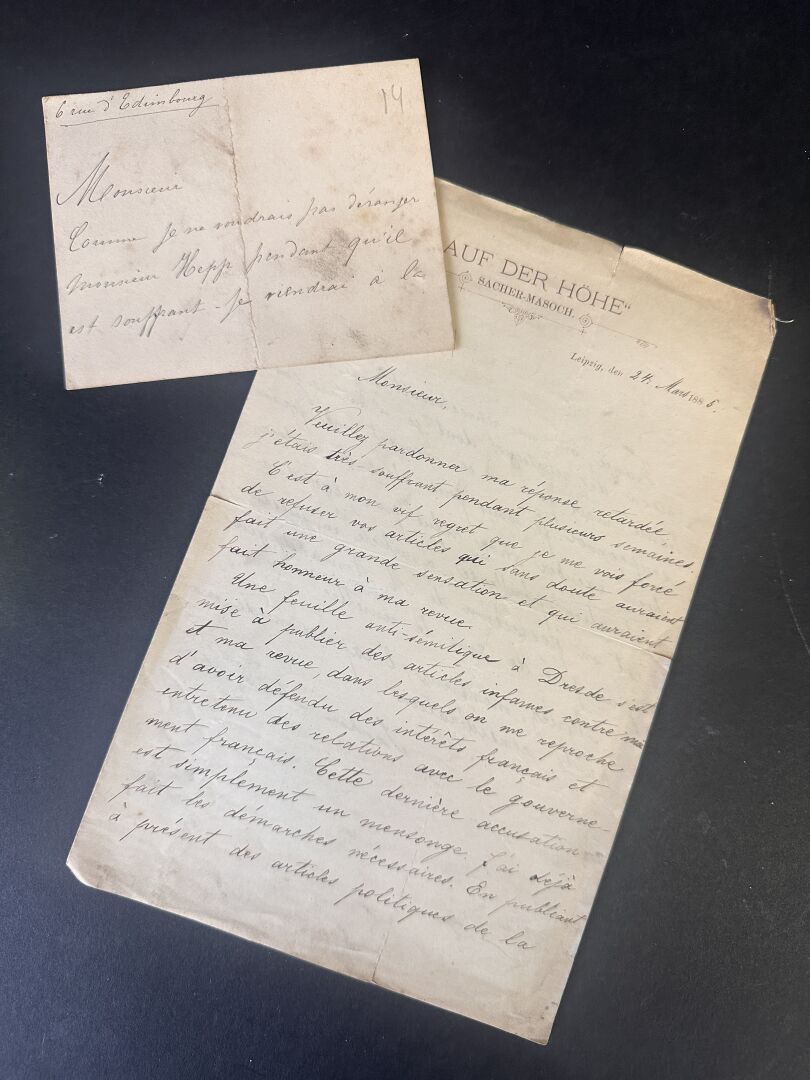 6 rue d'Edimbourg
14
Monsieur
Comme je ne voudrais pas déranger
monsieur Hepp pendant qu'il
est souffrant - je viendrai à la
AUF DER HÖHE"
SACHER-MASOCH.
Leipzig, den 24. Mars 1885.
Monsieur,
Veuillez pardonner ma réponse retardée,
j'étais très-souffrant pendant plusieurs semaines.
C'est à mon vif regret que je me vois forcé
de refuser vos articles qui sans doute auraient
fait une grande sensation et qui auraient
fait honneur à ma revue.
Une feuille anti-sémitique à Dresde s'est
mise à publier des articles infames contre moi
et ma revue, dans lesquels on me reproche
d'avoir défendu des intérêts français et
entretenu des relations avec le gouverne-
ment français. Cette dernière accusation
est simplement un mensonge. J'ai déjà
fait les démarches nécessaires. En publiant
à présent des articles politiques de la